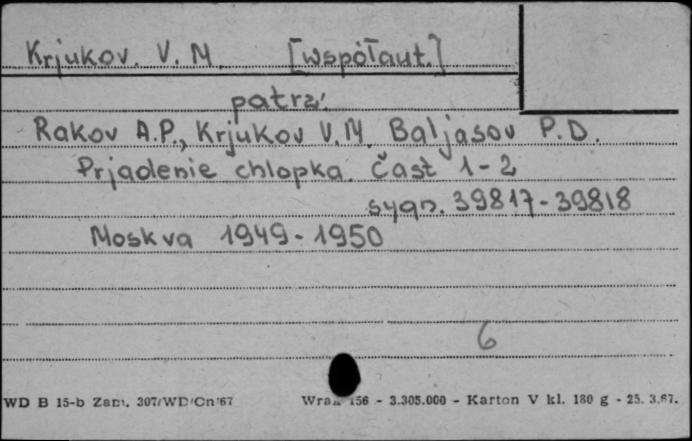 Krjukov. V. M. [współaut.]
patrz:
Rakov A.P., Krjukov V.M. Baljasov P.D.
Prjadenie chlopka. Čast 1-2
sygn. 39817-39818
Moskva 1949-1950
6
WD B 15-b Zam. 307/WD/Cn'67 156 - 3.305.000 - Karton V kl. 180 g - 25. 3.67.